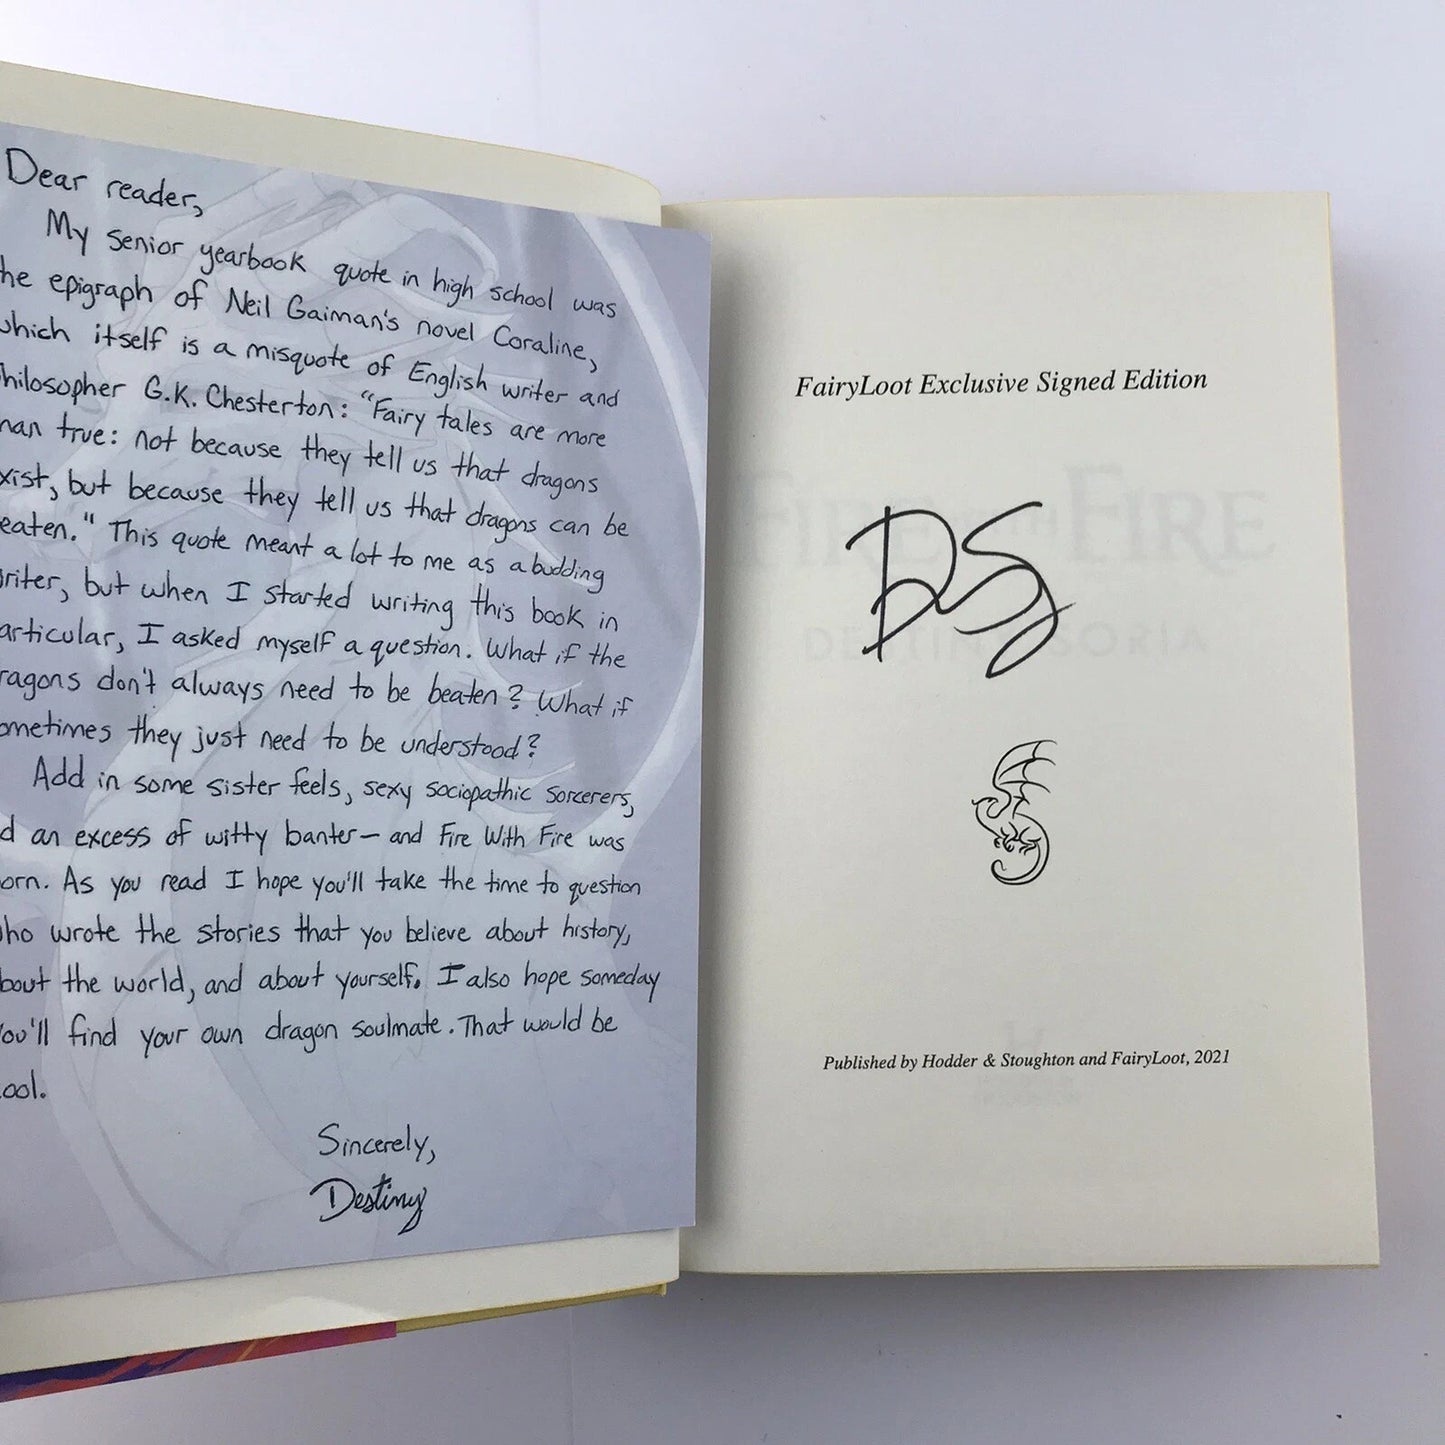 Dear reader,
My senior yearbook quote in high school was
he epigraph of Neil Gaiman's novel Coraline,
which itself is a misquote of English writer and
hilosopher G.K. Chesterton: "Fairy tales are more
han true: not because they tell us that dragons
xist, but because they tell us that dragons can be
eaten." This quote meant a lot to me as a budding
riter, but when I started writing this book in
articular, I asked myself a question. What if the
ragons don't always need to be beaten? What if
ometimes they just need to be understood?
Add in some sister feels, sexy sociopathic sorcerers,
d an excess of witty banter— and Fire With Fire was
orn. As you read I hope you'll take the time to question
ho wrote the stories that you believe about history,
bout the world, and about yourself. I also hope someday
ou'll find your own dragon soulmate. That would be
ool.
Sincerely,
Destiny
FairyLoot Exclusive Signed Edition
FIRE WITH FIRE
DS
DESTINY SORIA
Published by Hodder & Stoughton and FairyLoot, 2021